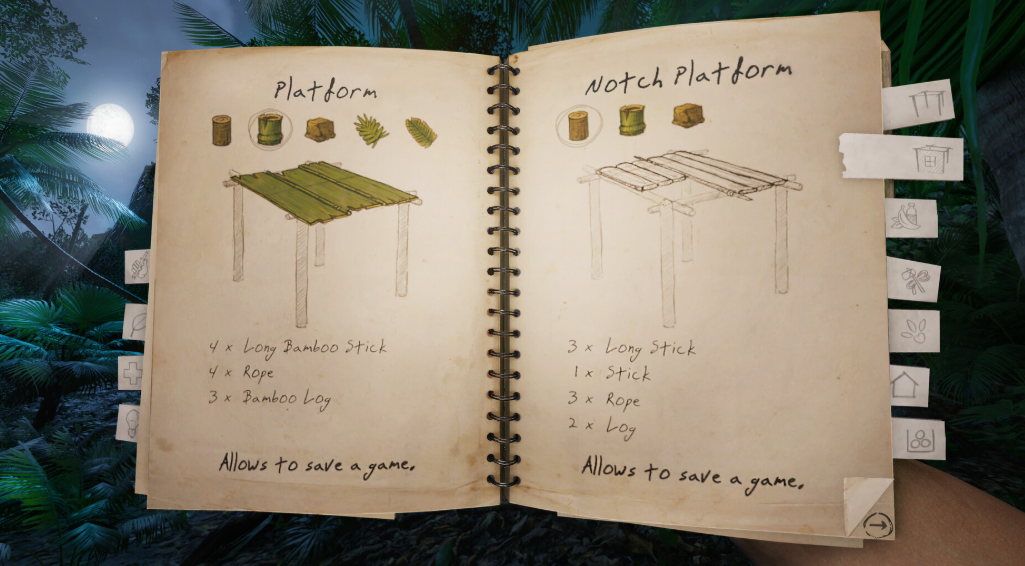 Platform
4 x Long Bamboo Stick
4 x Rope
3 x Bamboo Log
Allows to save a game.
Notch Platform
3 x Long Stick
1 x Stick
3 x Rope
2 x Log
Allows to save a game.